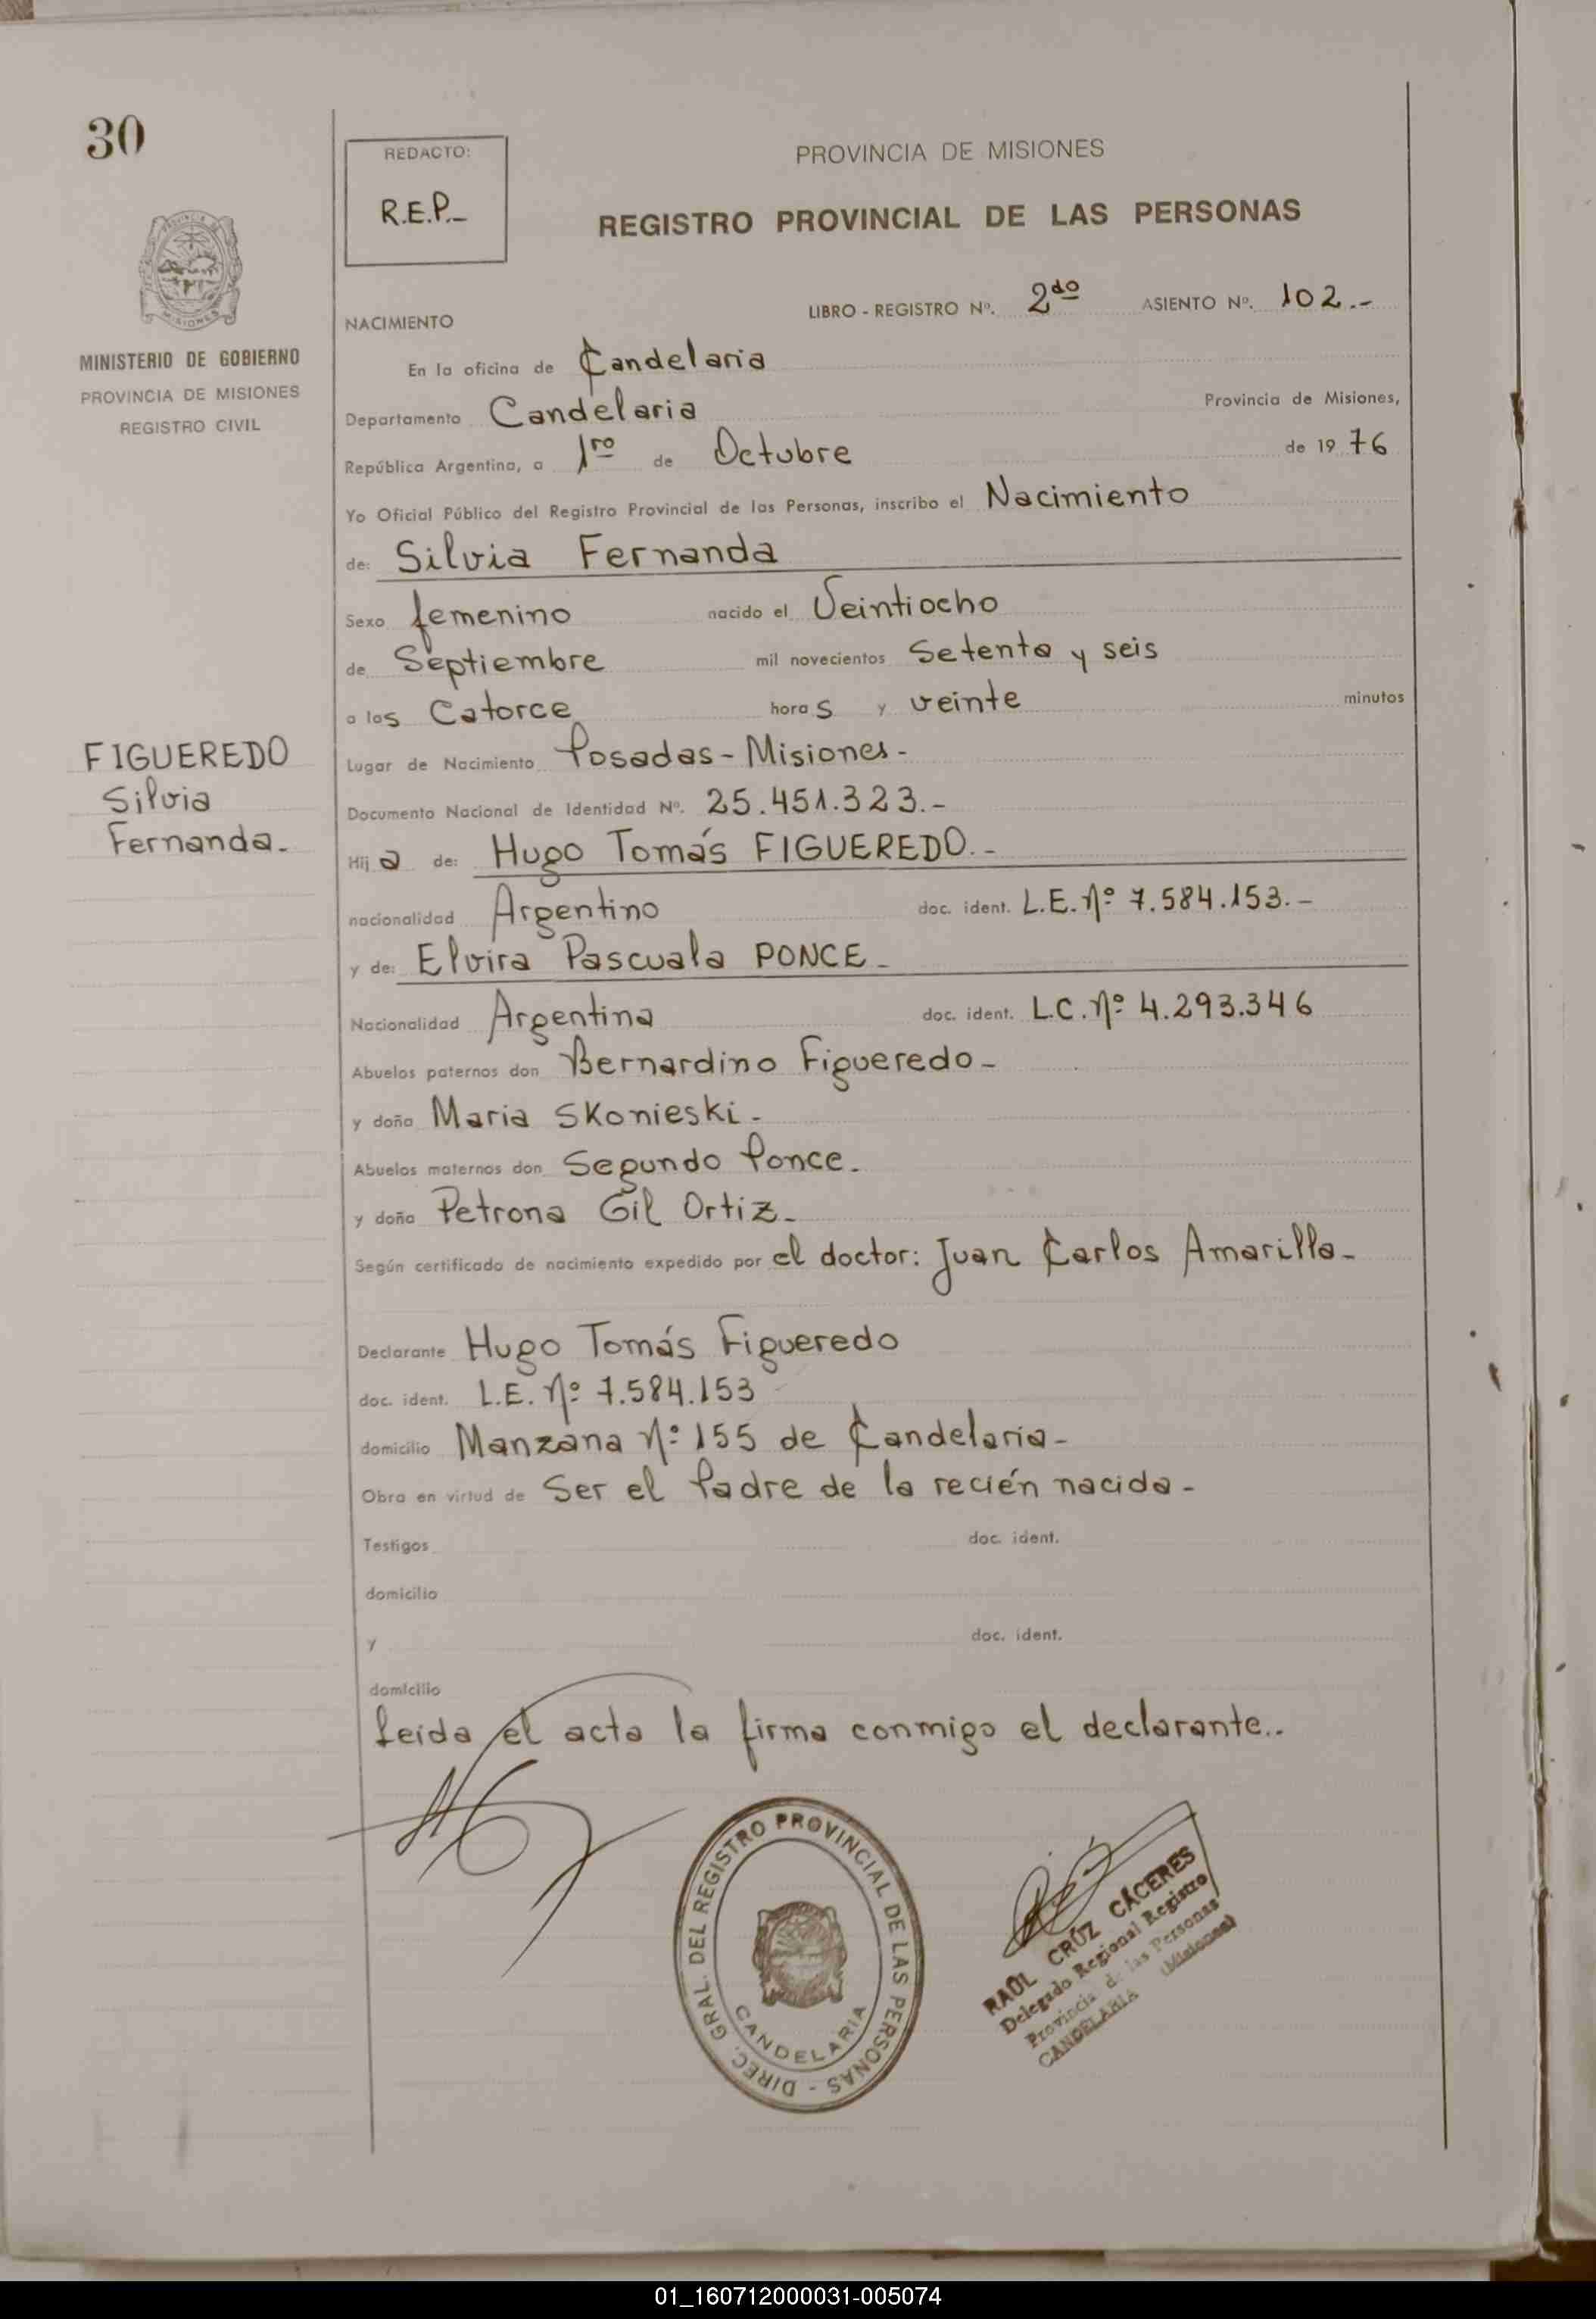 30
REDACTO:
R.E.P.-
PROVINCIA DE MISIONES
REGISTRO PROVINCIAL DE LAS PERSONAS
MISIONES
MINISTERIO DE GOBIERNO
PROVINCIA DE MISIONES
REGISTRO CIVIL
LIBRO - REGISTRO Nº. 2do ASIENTO Nº. 102.-
NACIMIENTO
En la oficina de Candelaria
Departamento Candelaria Provincia de Misiones,
República Argentina, a 1ro de Octubre de 1976
Yo Oficial Público del Registro Provincial de las Personas, inscribo el Nacimiento
de: Silvia Fernanda
Sexo femenino nacido el Veintiocho
de Septiembre mil novecientos Setenta y seis
a las Catorce horas y veinte minutos
Lugar de Nacimiento Posadas - Misiones -
Documento Nacional de Identidad Nº. 25.451.323.-
FIGUEREDO
Silvia
Fernanda.
Hija de: Hugo Tomás FIGUEREDO.-
nacionalidad Argentino doc. ident. L.E. Nº 7.584.153.-
y de: Elvira Pascuala PONCE -
Nacionalidad Argentina doc. ident. L.C. Nº 4.293.346
Abuelos paternos don Bernardino Figueredo -
y doña Maria Skonieski -
Abuelos maternos don Segundo Ponce.
y doña Petrona Gil Ortiz -
Según certificado de nacimiento expedido por el doctor: Juan Carlos Amarilla -
Declarante Hugo Tomás Figueredo
doc. ident. L.E. Nº 7.584.153
domicilio Manzana Nº 155 de Candelaria -
Obra en virtud de Ser el Padre de la recién nacida -
Testigos doc. ident.
domicilio
y doc. ident.
domicilio
Leida el acta la firma conmigo el declarante..
DIREC. GRAL. DEL REGISTRO PROVINCIAL DE LAS PERSONAS -
CANDELARIA
RAÚL CRÚZ CÁCERES
Delegado Regional Registro
Provincia de las Personas
CANDELARIA (Misiones)
01_160712000031-005074